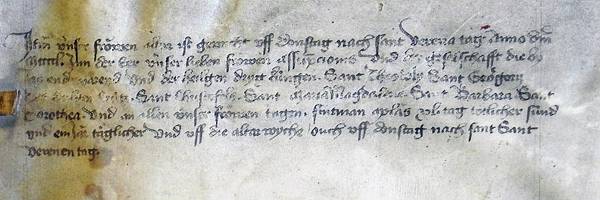 Item unser frowen altar ist gewicht uff donstag nach sant verena tag anno dm
in der ere unser lieben frowen assumcionis und der geselschafft die by
ir und der heiligen dryer kungen. Sant Theodoly Sant Geogory
Sant cristofels. Sant mariamagdalena. Sant Barbara Sant
Dorothea. Und an allen unser frowen tagen. fintman aplas xl tag totlicher sund
und ein iar täglicher Und uff die altarwyche ouch uff donstag nach sant Sant
verenen tag.